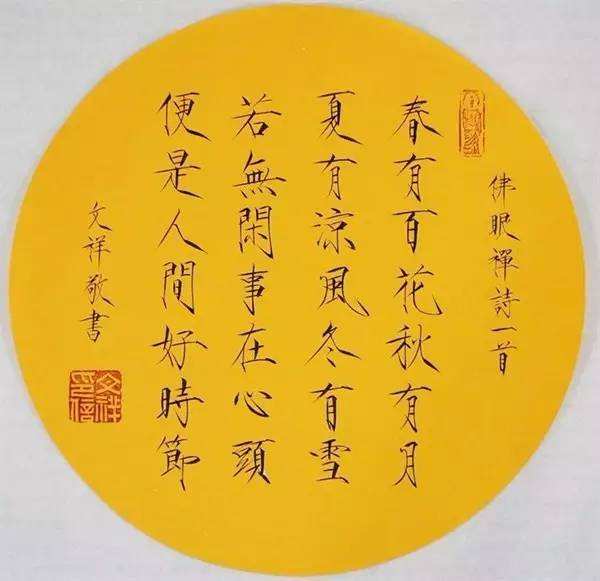 佛眼禪詩一首
春有百花秋有月
夏有涼風冬有雪
若無閑事在心頭
便是人間好時節
文祥敬書
文祥印信